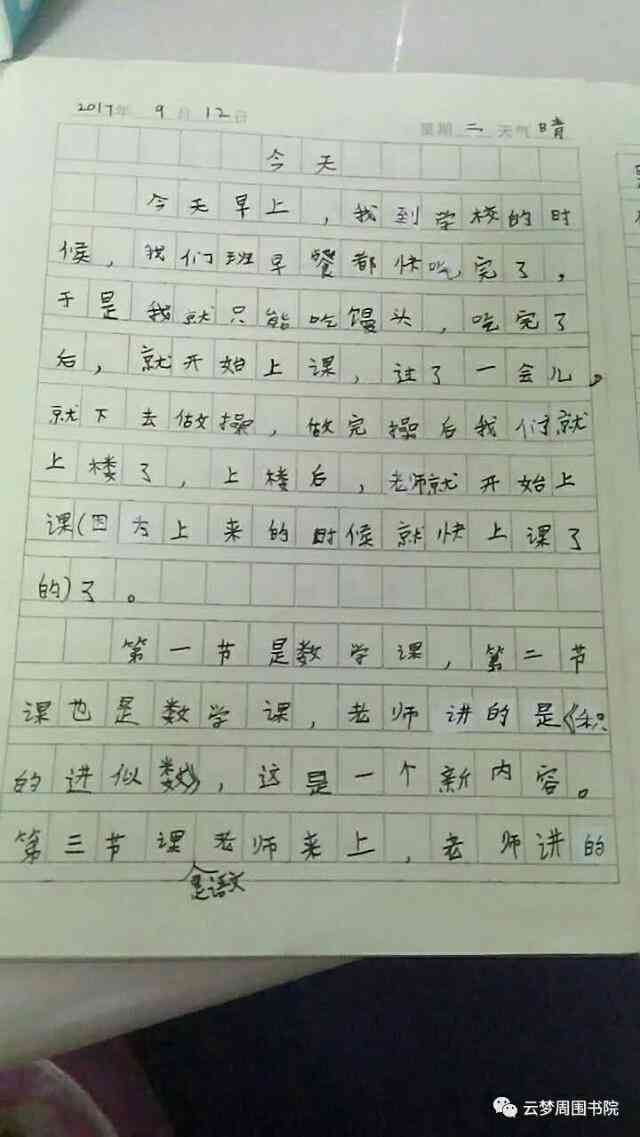 2017年 9月 12日 星期二 天气 晴
今天
今天早上，我到学校的时
候，我们班早餐都快吃完了，
于是我就只能吃馒头，吃完了
后，就开始上课，过了一会儿。
就下去做操，做完操后我们就
上楼了，上楼后，老师就开始上
课(因为上来的时候就快上课了
的)了。
第一节是数学课，第二节
课也是数学课，老师讲的是《积
的进似数》，这是一个新内容。
第三节课老师来上，老师讲的
是语文
云梦周围书院